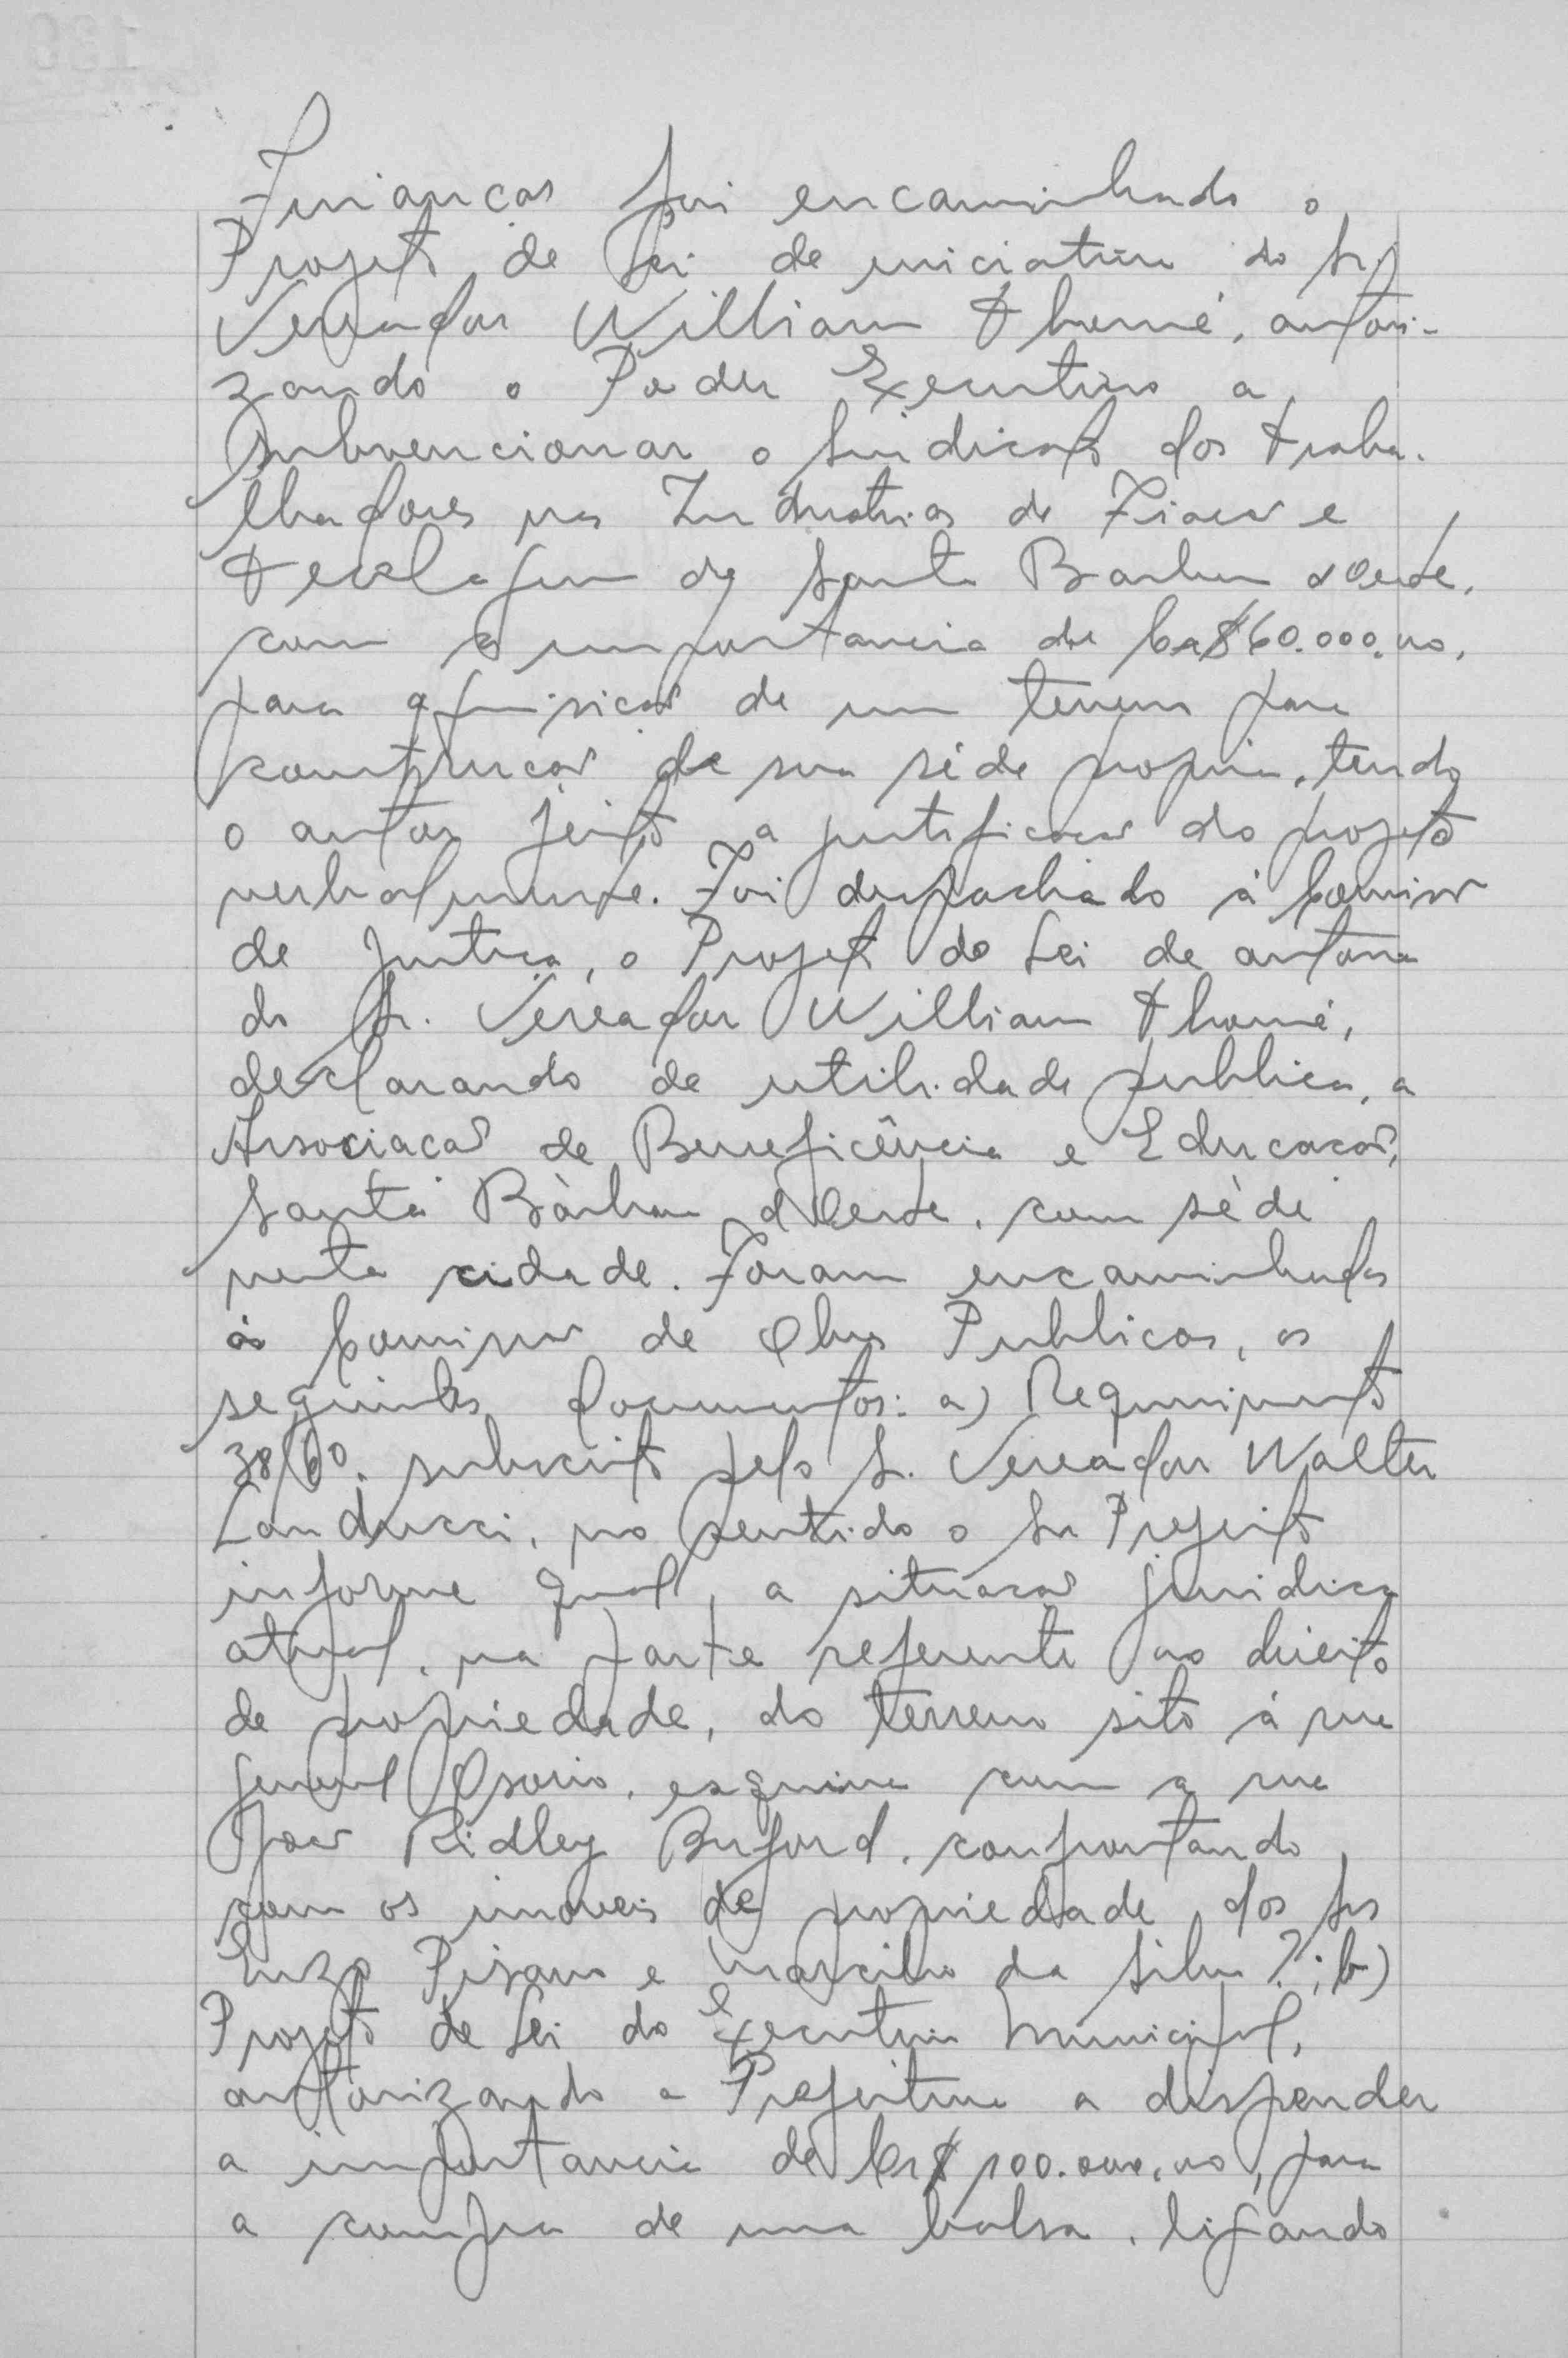 Finanças foi encaminhado o
Projeto de Lei de iniciativa do Sr.
Vereador William Thomé, autori-
zando o Poder Executivo a
subvencionar o Sindicato dos traba-
lhadores nas Industrias de Fiacao e
Tecelagem de Santa Barbara d'Oeste,
com a importancia de Cr$60.000,00,
para aquisicao de um terreno para
construcao de sua séde propria, tendo
o autor feito a justificacao do projeto
verbalmente. Foi despachado á Comissao
de Justica, o Projeto de Lei de autoria
do Sr. Vereador William Thomé,
declarando de utilidade publica, a
Associacao de Beneficência e Educacao,
Santa Bárbara d'Oeste, com séde
nesta cidade. Foram encaminhados
á Comissao de Obras Publicas, os
seguintes documentos: a) Requerimento
38/60, subscrito pelo Sr. Vereador Walter
Landucci, no sentido o Sr Prefeito
informe qual, a situacao juridica
atual, na parte referente ao direito
de propriedade, do terreno sito á rua
General Osorio, esquina com a rua
Joao Ridley Buford, confrontando
com os imoveis de propriedade dos Srs
Enzo Pisano e Marcilio da Silva?; b)
Projeto de Lei do Executivo Municipal,
autorizando a Prefeitura a dispender
a importancia de Cr$ 100.000,00, para
a compra de uma balsa, ligando